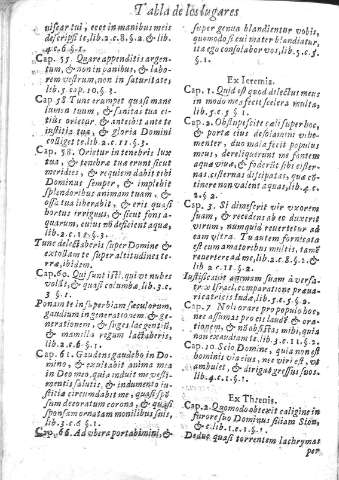 Tabla de los lugares
uiscar tui, ecce in manibus meis
descripsi te, lib. 2. c. 8. §. 2. & lib.
4. c. 6 §. 1.
Cap. 55. Quare appenditis argen-
tum, & non in panibus, & labo-
rem vestrum, non in saturitate,
lib. 5 cap. 10. §. 3.
Cap 58 Tunc erumpet quasi mane
lumen tuum, & sanitas tua ci-
tius orietur, & anteibit ante te
iustitia tua, & gloria Domini
colliget te. lib. 2. c. 11 §. 3.
Cap. 58. Orietur in tenebris lux
tua, & tenebræ tuæ erunt sicut
meridies, & requiem dabit tibi
Dominus semper, & implebit
splendoribus animam tuam, &
ossa tua liberabit, & eris quasi
hortus irriguus, & sicut fons a-
quarum, cuius nō deficient aquæ,
lib. 2. c. 15. §. 3.
Tunc delectaberis super Domino &
extollam te super altitudines te-
rræ, ibidem.
Cap. 60. Qui sunt isti, qui vt nubes
volāt, & quasi columbæ, lib. 3. c.
3 §. 1.
Ponam te in superbiam sæculorum,
gaudium in generationem & ge-
nerationem, & suges lac gentiū,
& mamilla regum lactaberis,
lib. 2. c. 6. §. 1.
Cap. 61. Gaudens gaudebo in Do-
mino, & exultabit anima mea
in Deo meo, quia induit me vesti-
mentis salutis, & indumento iu-
stitiæ circumdabit me, quasi spō
sum decoratum corona, & quasi
sponsam ornatam monilibus suis,
lib. 3. c. 6 §. 1.
Cap. 66. Ad vbera portabimini, &
super genua blandientur vobis,
quomodo si cui mater blandiatur,
ita ego consolabor vos, lib. 5. c.
5. §. 1.
Ex Ieremia.
Cap. 2. Obstupescite cæli super hoc,
& portæ eius desolamini vehe-
menter, duo mala fecit populus
meus, dereliquerunt me fontem
aquæ viuæ, & foderūt sibi cister-
nas, cisternas dissipatas, quæ cō-
tinere non valent aquas, lib. 4. c.
2. §. 2.
Cap. 3. Si dimiserit vir vxorem
suam, & recedens ab eo duxerit
virum, nunquid reuertetur ad
eam vltra. Tu autem fornicata
es cum amatoribus multis, tamē
reuertere ad me, lib. 2. c. 8. §. 2. &
lib 2 c. 15 §. 2.
Iustificauit animam suam
Cap. 7 Noli orare pro populo hoc,
nec assumas pro eis laudē & ora-
tionem, & nō obsistas mihi, quia
non exaudiam te. lib. 3. c. 11 §. 2.
Cap. 10. Scio Domine, quia non est
hominis via eius, nec viri est, vt
ambulet, & dirigat gressus suos.
lib. 4. c. 1. §. 1.
Ex Threnis.
Cap. 2. Quomodo obtexit caligine in
furore suo Dominus filiam Sion,
&c. lib. 1. c. 1. §. 1.
Deduc quasi torrentem lachrymas
per